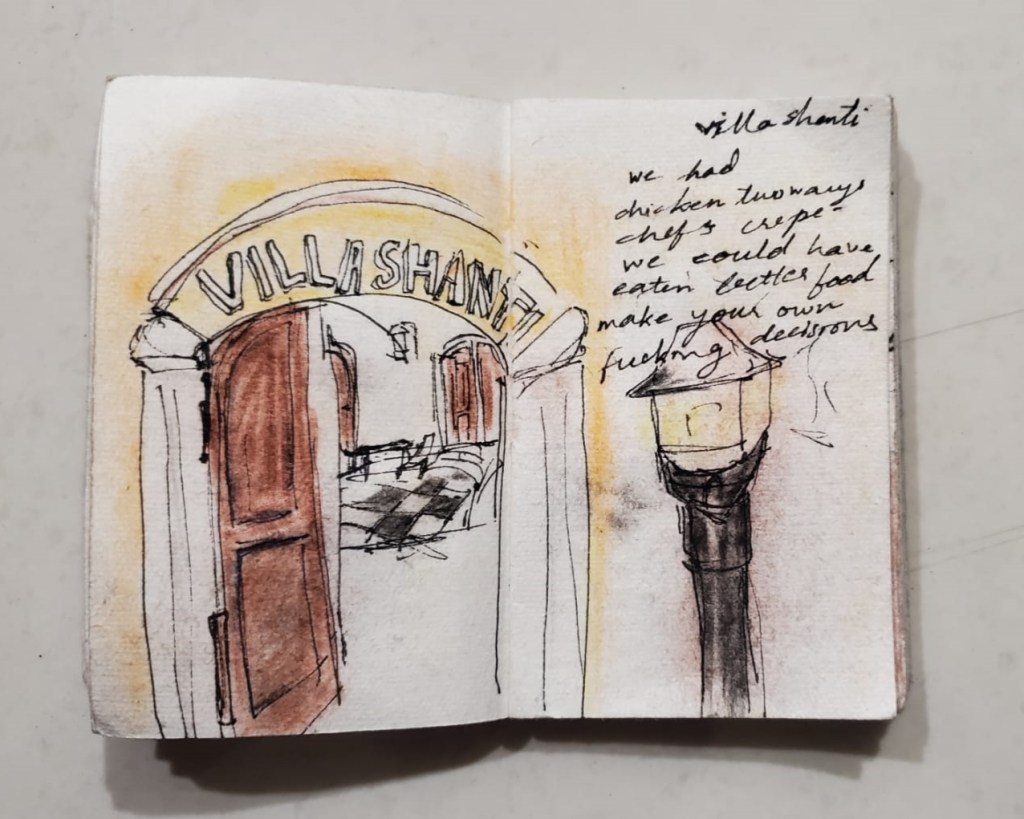 VILLA SHANTI
villa shanti
we had
chicken twoways
chef's crepe-
we could have
eaten better food
make your own
fucking decisions